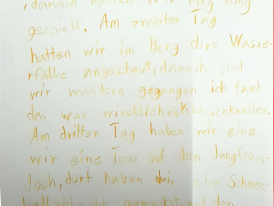 , danach haben wir Ping Pong
gespielt. Am zweiten Tag
hatten wir im Berg drin Wasser-
fälle angeschaut, danach sind
wir wandern gegangen ich fand
das war
Am dritten Tag haben wir eine
wir eine Tour auf den Jungfrau
Joch, dort haben wir eine Schnee-
ballschlacht gemacht und den